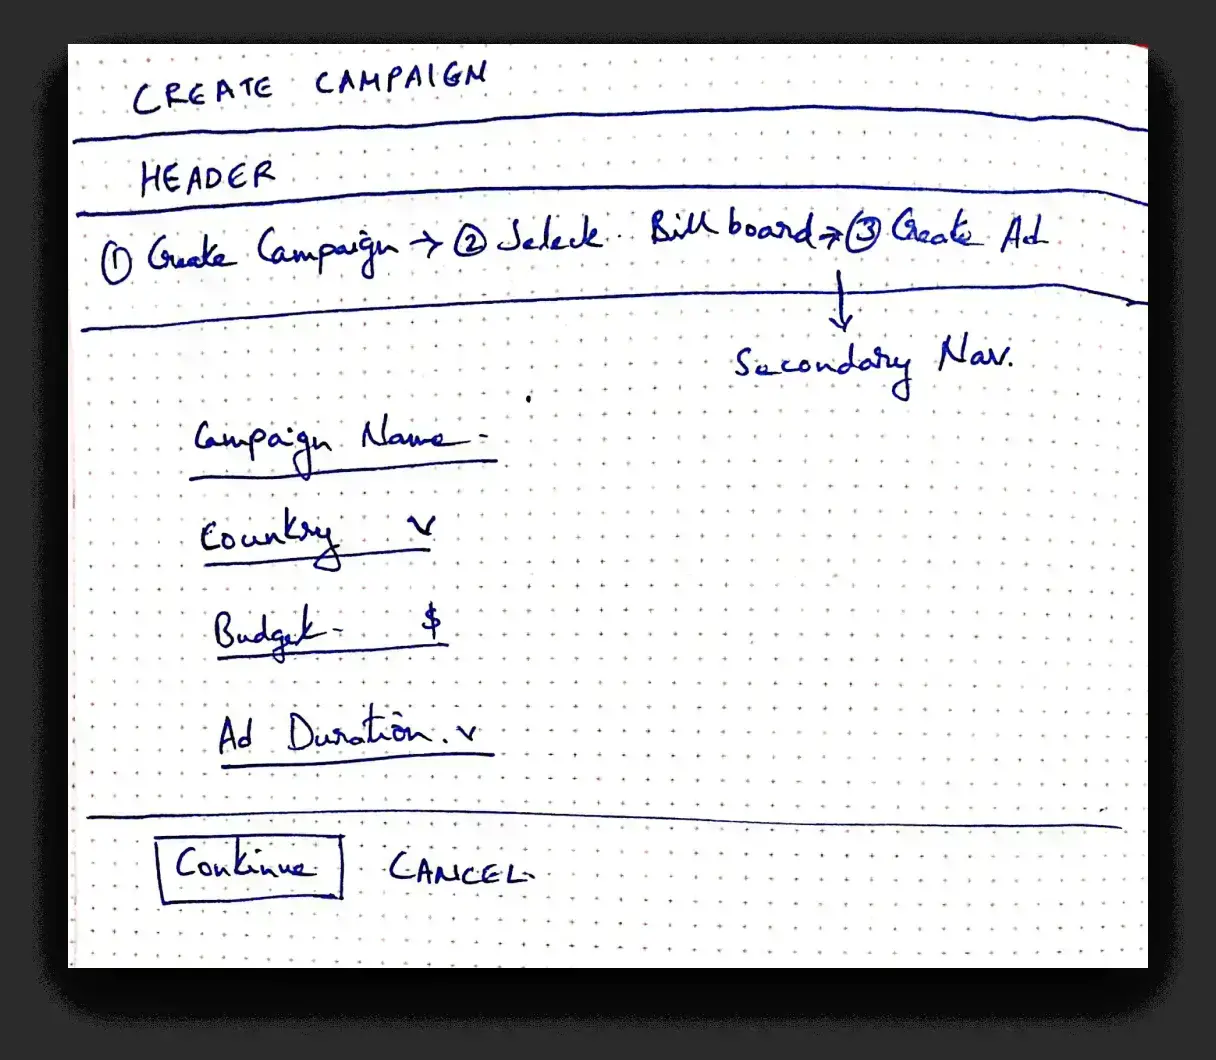 CREATE CAMPAIGN
HEADER
① Create Campaign → ② Select Billboard → ③ Create Ad
Secondary Nav.
Campaign Name -
Country v
Budget - $
Ad Duration. v
Continue CANCEL